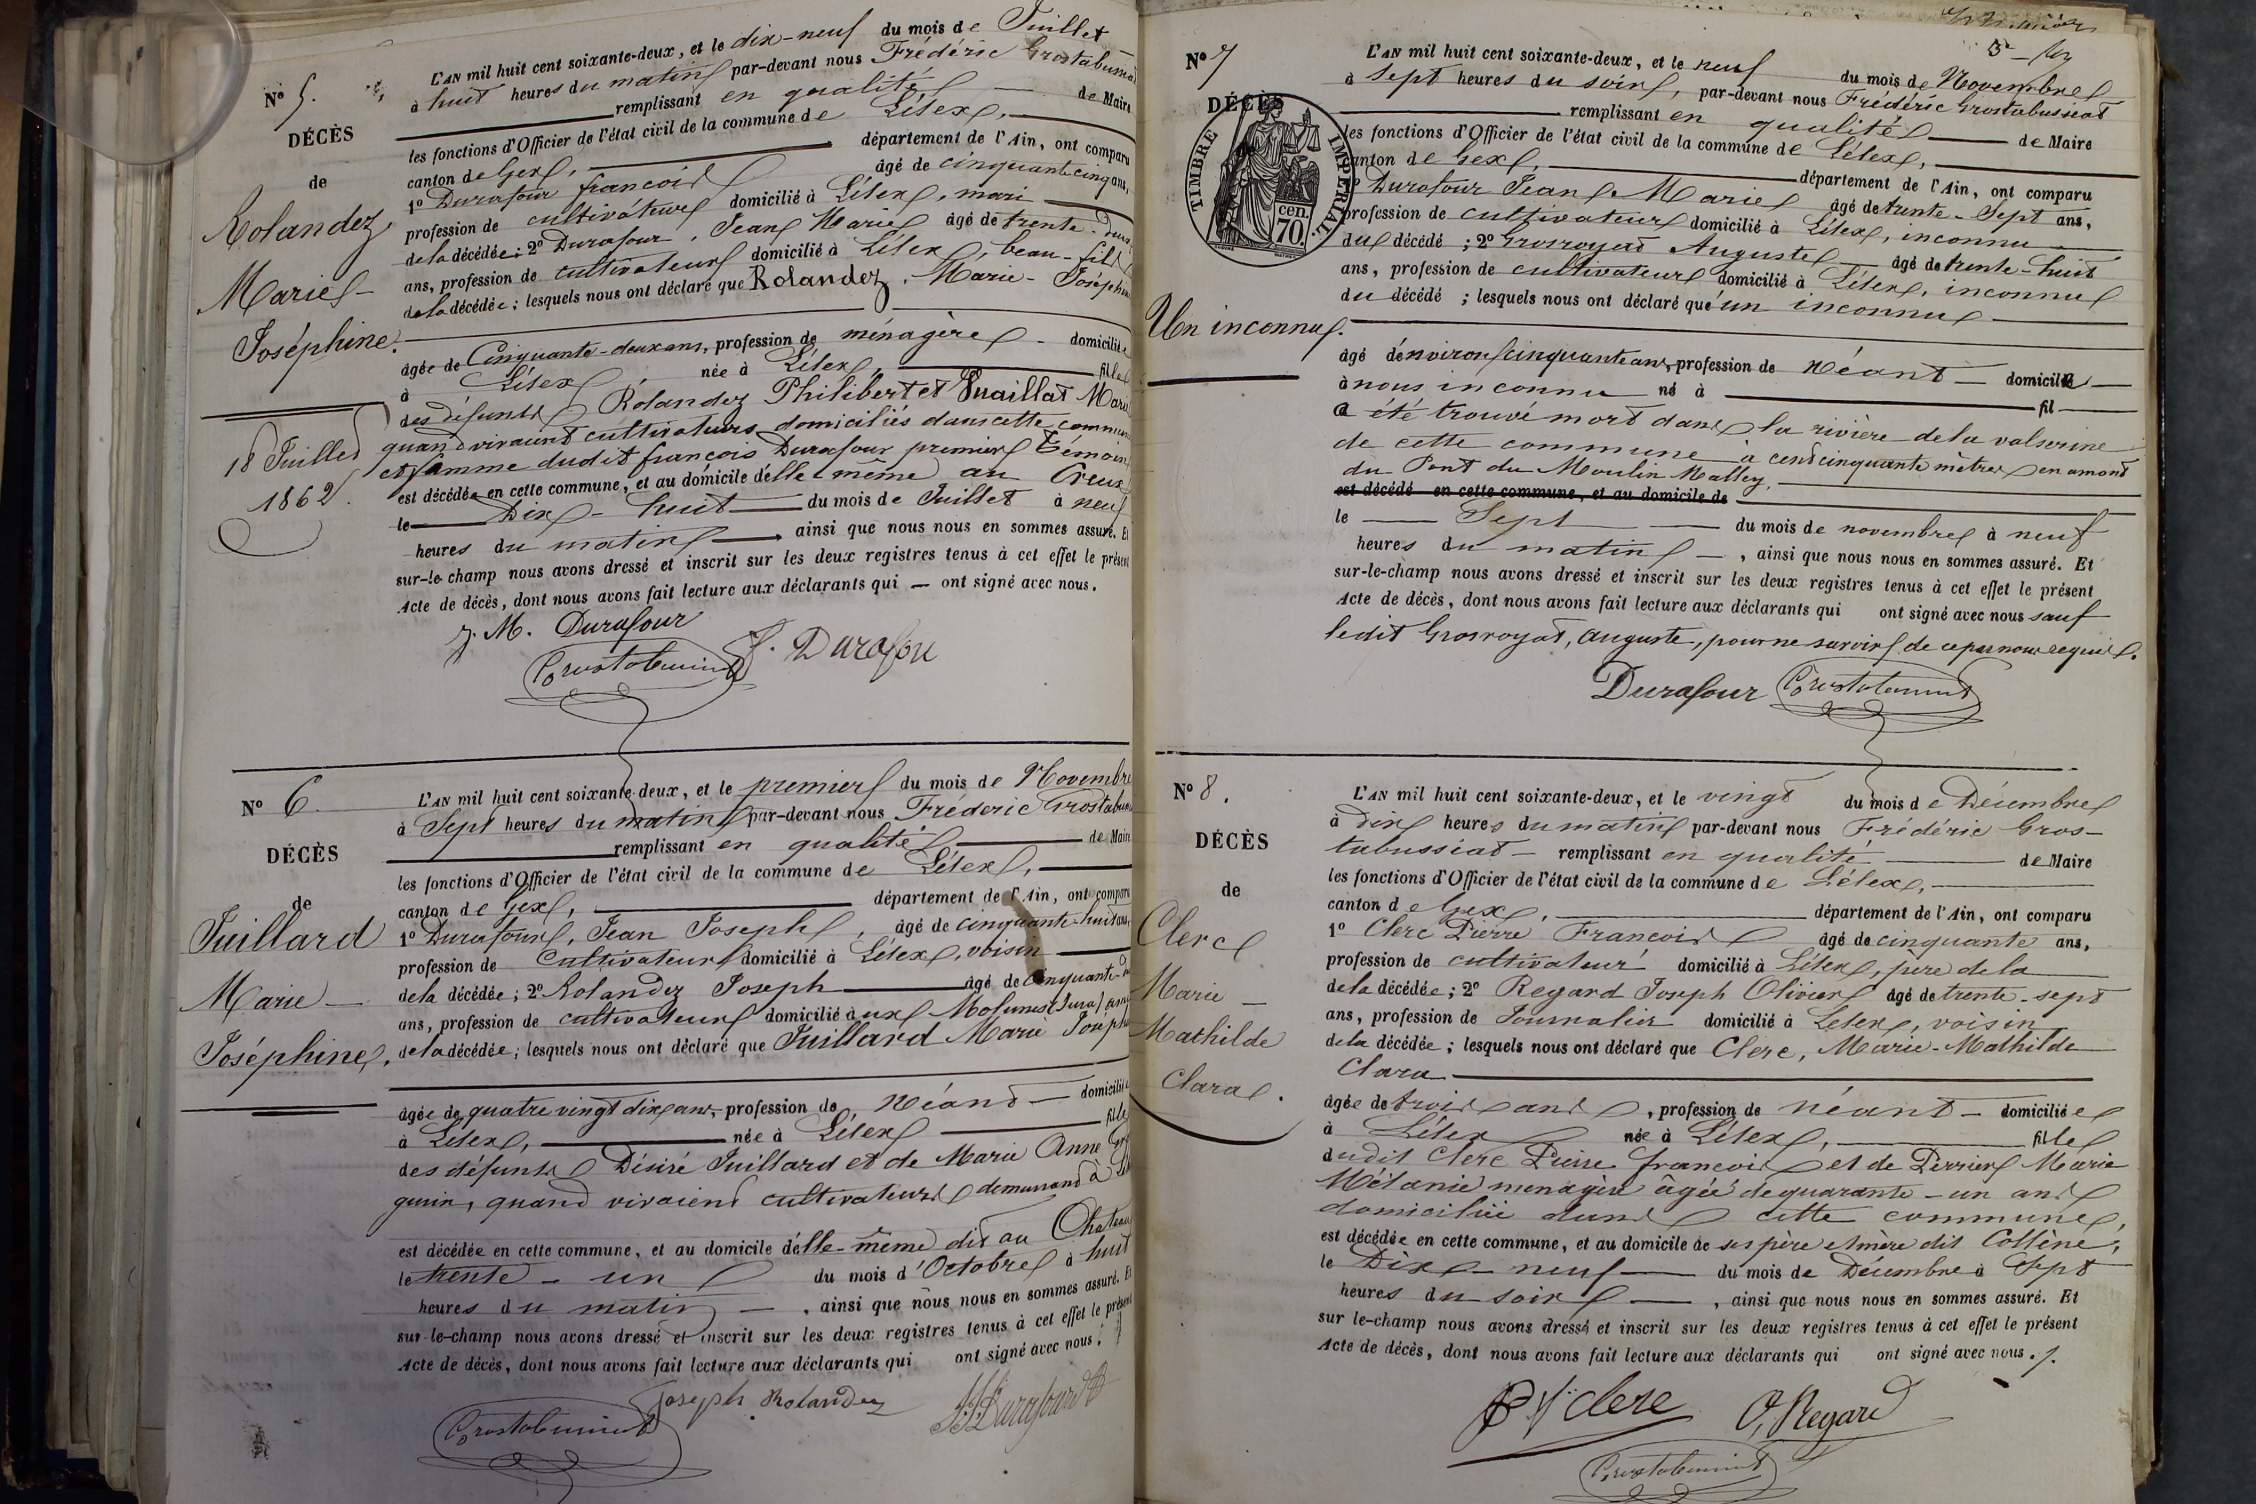 N° 5.
DÉCÈS
de
Rolandez
Marie
Joséphine.
18 Juillet
1862.
L'AN mil huit cent soixante-deux, et le dix-neuf du mois de Juillet
à huit heures du matin par-devant nous Frédéric Grostabussiat
remplissant en qualité de Maire
les fonctions d'Officier de l'état civil de la commune de Lélex,
canton de Gex, département de l'Ain, ont comparu
1° Durafour françois âgé de cinquante cinq ans,
profession de cultivateur domicilié à Lélex, mari
de la décédée; 2° Durafour, Jean Marie âgé de trente-deux
ans, profession de cultivateur domicilié à Lélex, beau-fils
de la décédée; lesquels nous ont déclaré que Rolandez, Marie-Joséphine
âgée de Cinquante-deux ans, profession de ménagère domiciliée
à Lélex, née à Lélex, fille
des défunts Rolandez Philibert et Vuaillat Marie
quand vivaient cultivateurs domiciliés dans cette commune
et femme dudit françois Durafour premier témoin
est décédée en cette commune, et au domicile d'elle même au Creux
le Dix-huit du mois de Juillet à neuf
heures du matin, ainsi que nous nous en sommes assuré. Et
sur-le-champ nous avons dressé et inscrit sur les deux registres tenus à cet effet le présent
Acte de décès, dont nous avons fait lecture aux déclarants qui — ont signé avec nous.
J. M. Durafour
Grostabussiat F. Durafou
N° 6.
DÉCÈS
de
Juillard
Marie
Joséphine.
L'AN mil huit cent soixante-deux, et le premier du mois de Novembre
à Sept heures du matin par-devant nous Frédéric Grostabussiat
remplissant en qualité de Maire
les fonctions d'Officier de l'état civil de la commune de Lélex,
canton de Gex, département de l'Ain, ont comparu
1° Durafour, Jean Joseph, âgé de cinquante-huit ans,
profession de Cultivateur domicilié à Lélex, voisin
de la décédée; 2° Rolandez Joseph âgé de cinquante
ans, profession de cultivateur domicilié aux Molunes (Jura)
de la décédée; lesquels nous ont déclaré que Juillard Marie Joséphine
âgée de quatre vingt dix ans, profession de Néant domiciliée
à Lélex, née à Lélex fille
des défunts Désiré Juillard et de Marie Anne
quand vivaient cultivateurs demeurant à
est décédée en cette commune, et au domicile d'elle-même dit au Chateau
le trente-un du mois d'Octobre à huit
heures du matin, ainsi que nous nous en sommes assuré. Et
sur-le-champ nous avons dressé et inscrit sur les deux registres tenus à cet effet le présent
Acte de décès, dont nous avons fait lecture aux déclarants qui ont signé avec nous.
Joseph Rolandez J. J. Durafour
Grostabussiat
N° 7
DÉCÈS
TIMBRE IMPÉRIAL.
cen.
70.
Un inconnu.
L'AN mil huit cent soixante-deux, et le neuf du mois de Novembre
à sept heures du soir, par-devant nous Frédéric Grostabussiat
remplissant en qualité de Maire
les fonctions d'Officier de l'état civil de la commune de Lélex,
canton de Gex, département de l'Ain, ont comparu
1° Durafour Jean Marie âgé de trente-Sept ans,
profession de cultivateur domicilié à Lélex, inconnu
du décédé; 2° Grosroyat Auguste âgé de trente-huit
ans, profession de cultivateur domicilié à Lélex, inconnu
du décédé; lesquels nous ont déclaré qu'un inconnu
âgé d'environ cinquante ans, profession de Néant domicilié
à nous inconnu né à fil
a été trouvé mort dans la rivière de la valserine
de cette commune à cent cinquante mètres en amont
du Pont du Moulin Malley.
est décédé en cette commune, et au domicile de
le Sept du mois de novembre à neuf
heures du matin, ainsi que nous nous en sommes assuré. Et
sur-le-champ nous avons dressé et inscrit sur les deux registres tenus à cet effet le présent
Acte de décès, dont nous avons fait lecture aux déclarants qui ont signé avec nous sauf
ledit Grosroyat, Auguste, pour ne savoir de ce par nous requis.
Durafour Grostabussiat
N° 8.
DÉCÈS
de
Clerc
Marie
Mathilde
Clara.
L'AN mil huit cent soixante-deux, et le vingt du mois de Décembre
à dix heures du matin par-devant nous Frédéric Gros-
tabussiat remplissant en qualité de Maire
les fonctions d'Officier de l'état civil de la commune de Lélex,
canton de Gex, département de l'Ain, ont comparu
1° Clerc Pierre François âgé de cinquante ans,
profession de cultivateur domicilié à Lélex, père de la
de la décédée; 2° Regard Joseph Olivier âgé de trente-sept
ans, profession de Journalier domicilié à Lelex, voisin
de la décédée; lesquels nous ont déclaré que Clerc, Marie-Mathilde
Clara
âgée de trois ans, profession de néant domiciliée
à Lélex née à Lélex, fille
dudit Clerc Pierre françois et de Perrier Marie
Mélanie menagère âgée de quarante-un ans
domiciliée dans cette commune,
est décédée en cette commune, et au domicile de ses père et mère dit Collène,
le Dix-neuf du mois de Décembre à Sept
heures du soir, ainsi que nous nous en sommes assuré. Et
sur le-champ nous avons dressé et inscrit sur les deux registres tenus à cet effet le présent
Acte de décès, dont nous avons fait lecture aux déclarants qui ont signé avec nous.
P. f. clerc O, Regard
Grostabussiat